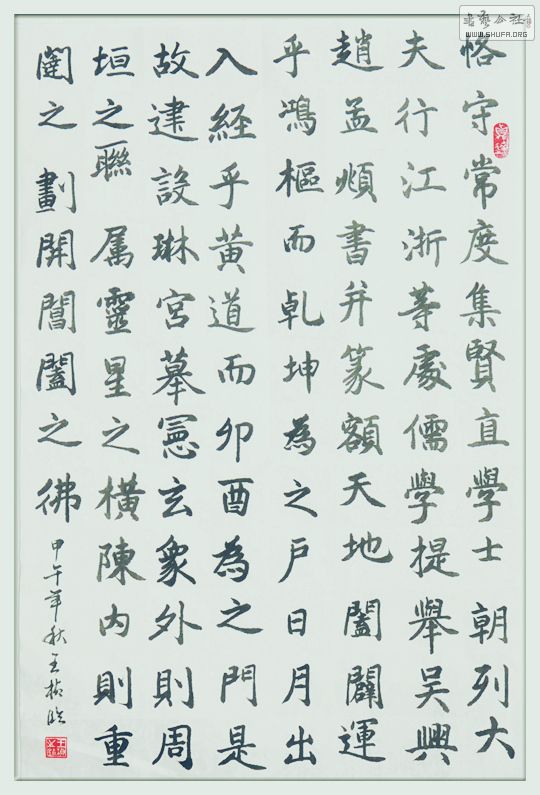 恪守常度集賢直學士朝列大
夫行江浙等處儒學提舉吳興
趙孟頫書并篆額天地闔闢運
乎鴻樞而乹坤為之戶日月出
入經乎黄道而卯酉為之門是
故建設琳宮摹憲玄象外則周
垣之聯属靈星之橫陳内則重
闥之劃開閶闔之彿
甲午年秋王臨
書藝公社
WWW.SHUFA.ORG